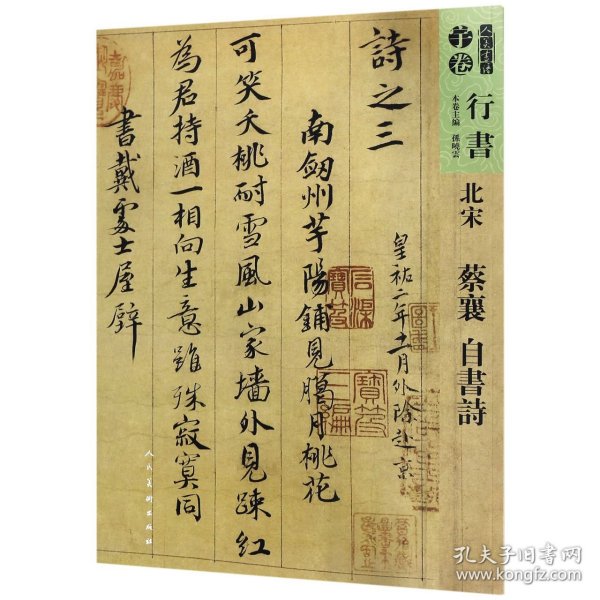 人美書譜
芋卷
行書
本卷主編 孫曉雲
北宋
蔡襄 自書詩
詩之三
皇祐二年十一月外除赴京
南劔州芋陽鋪見臘月桃花
可笑夭桃耐雪風山家墻外見踈紅
為君持酒一相向生意雖殊寂寞同
書戴處士屋壁
人民美術出版社
孔夫子旧书网
www.kongfz.com